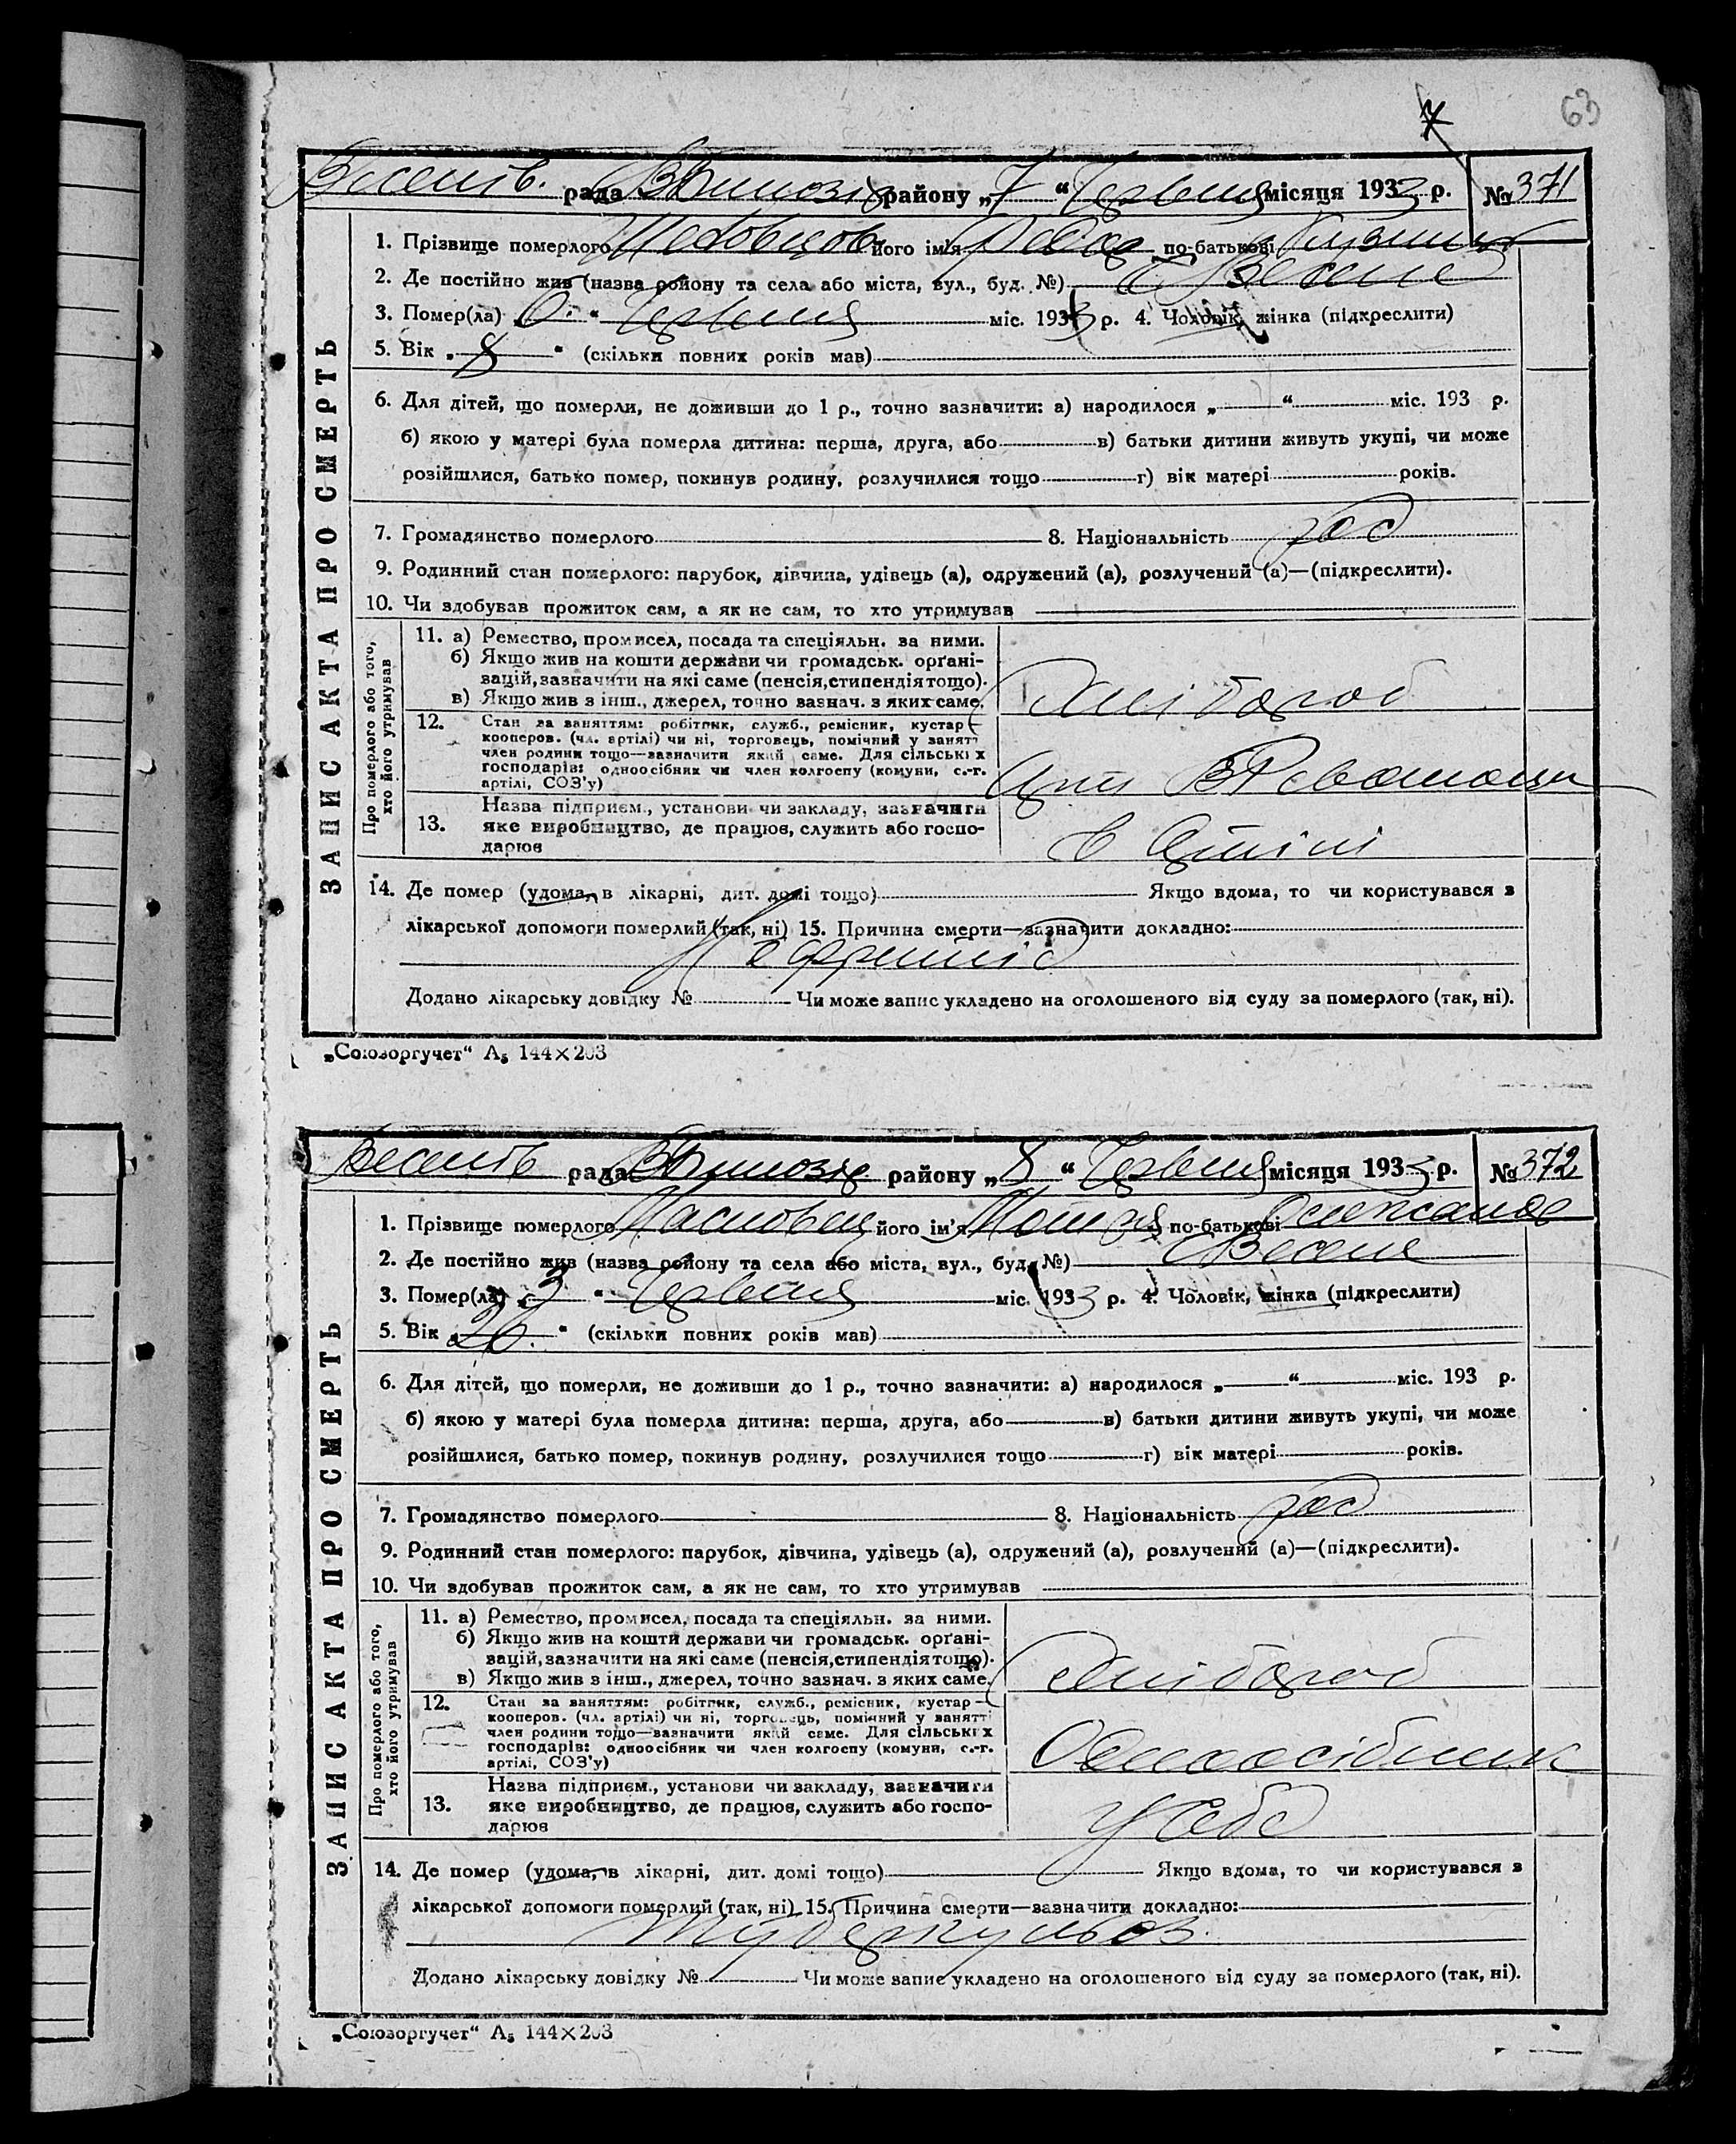 63
рада району „7“ Червня місяця 1933 р. № 371
1. Прізвище померлого його ім'я по-батькові
2. Де постійно жив (назва району та села або міста, вул., буд. №)
3. Помер(ла) „ “ Червня міс. 1933 р. 4. Чоловік, жінка (підкреслити)
5. Вік „8“ (скільки повних років мав)
6. Для дітей, що померли, не доживши до 1 р., точно зазначити: а) народилося „ “ міс. 193 р.
б) якою у матері була померла дитина: перша, друга, або в) батьки дитини живуть укупі, чи може
розійшлися, батько помер, покинув родину, розлучилися тощо г) вік матері років.
7. Громадянство померлого 8. Національність
9. Родинний стан померлого: парубок, дівчина, удівець (а), одружений (а), розлучений (а)—(підкреслити).
10. Чи здобував прожиток сам, а як не сам, то хто утримував
ЗАПИС АКТА ПРО СМЕРТЬ
Про померлого або того,
хто його утримував
11. а) Ремество, промисел, посада та спеціяльн. за ними.
б) Якщо жив на кошти держави чи громадськ. орґані-
зацій, зазначити на які саме (пенсія, стипендія тощо).
в) Якщо жив з інш., джерел, точно зазнач. з яких саме.
Хлібороб
12. Стан за заняттям: робітник, служб., ремісник, кустар—
кооперов. (чл. артілі) чи ні, торговець, помічний у занятт
член родини тощо—зазначити який саме. Для сільських
господарів: одноосібник чи член колгоспу (комуни, с.-г.
артілі, СОЗ'у)
13. Назва підприєм., установи чи закладу, зазначити
яке виробництво, де працює, служить або госпо-
дарює
в Артілі
14. Де помер (удома, в лікарні, дит. домі тощо) Якщо вдома, то чи користувався з
лікарської допомоги померлий (так, ні) 15. Причина смерти—зазначити докладно:
Додано лікарську довідку № Чи може запис укладено на оголошеного від суду за померлого (так, ні).
„Союзоргучет“ А₅ 144×203
рада району „8“ Червня місяця 1933 р. № 372
1. Прізвище померлого його ім'я Мотря по-батькові Олександр
2. Де постійно жив (назва району та села або міста, вул., буд. №)
3. Помер(ла) „3“ Червня міс. 1933 р. 4. Чоловік, жінка (підкреслити)
5. Вік „ “ (скільки повних років мав)
6. Для дітей, що померли, не доживши до 1 р., точно зазначити: а) народилося „ “ міс. 193 р.
б) якою у матері була померла дитина: перша, друга, або в) батьки дитини живуть укупі, чи може
розійшлися, батько помер, покинув родину, розлучилися тощо г) вік матері років.
7. Громадянство померлого 8. Національність
9. Родинний стан померлого: парубок, дівчина, удівець (а), одружений (а), розлучений (а)—(підкреслити).
10. Чи здобував прожиток сам, а як не сам, то хто утримував
ЗАПИС АКТА ПРО СМЕРТЬ
Про померлого або того,
хто його утримував
11. а) Ремество, промисел, посада та спеціяльн. за ними.
б) Якщо жив на кошти держави чи громадськ. орґані-
зацій, зазначити на які саме (пенсія, стипендія тощо).
в) Якщо жив з інш., джерел, точно зазнач. з яких саме.
Хлібороб
12. Стан за заняттям: робітник, служб., ремісник, кустар—
кооперов. (чл. артілі) чи ні, торговець, помічний у занятті
член родини тощо—зазначити який саме. Для сільських
господарів: одноосібник чи член колгоспу (комуни, с.-г.
артілі, СОЗ'у)
Одноосібник
13. Назва підприєм., установи чи закладу, зазначити
яке виробництво, де працює, служить або госпо-
дарює
У себе
14. Де помер (удома, в лікарні, дит. домі тощо) Якщо вдома, то чи користувався з
лікарської допомоги померлий (так, ні) 15. Причина смерти—зазначити докладно:
туберкульоз
Додано лікарську довідку № Чи може запис укладено на оголошеного від суду за померлого (так, ні).
„Союзоргучет“ А₅ 144×203